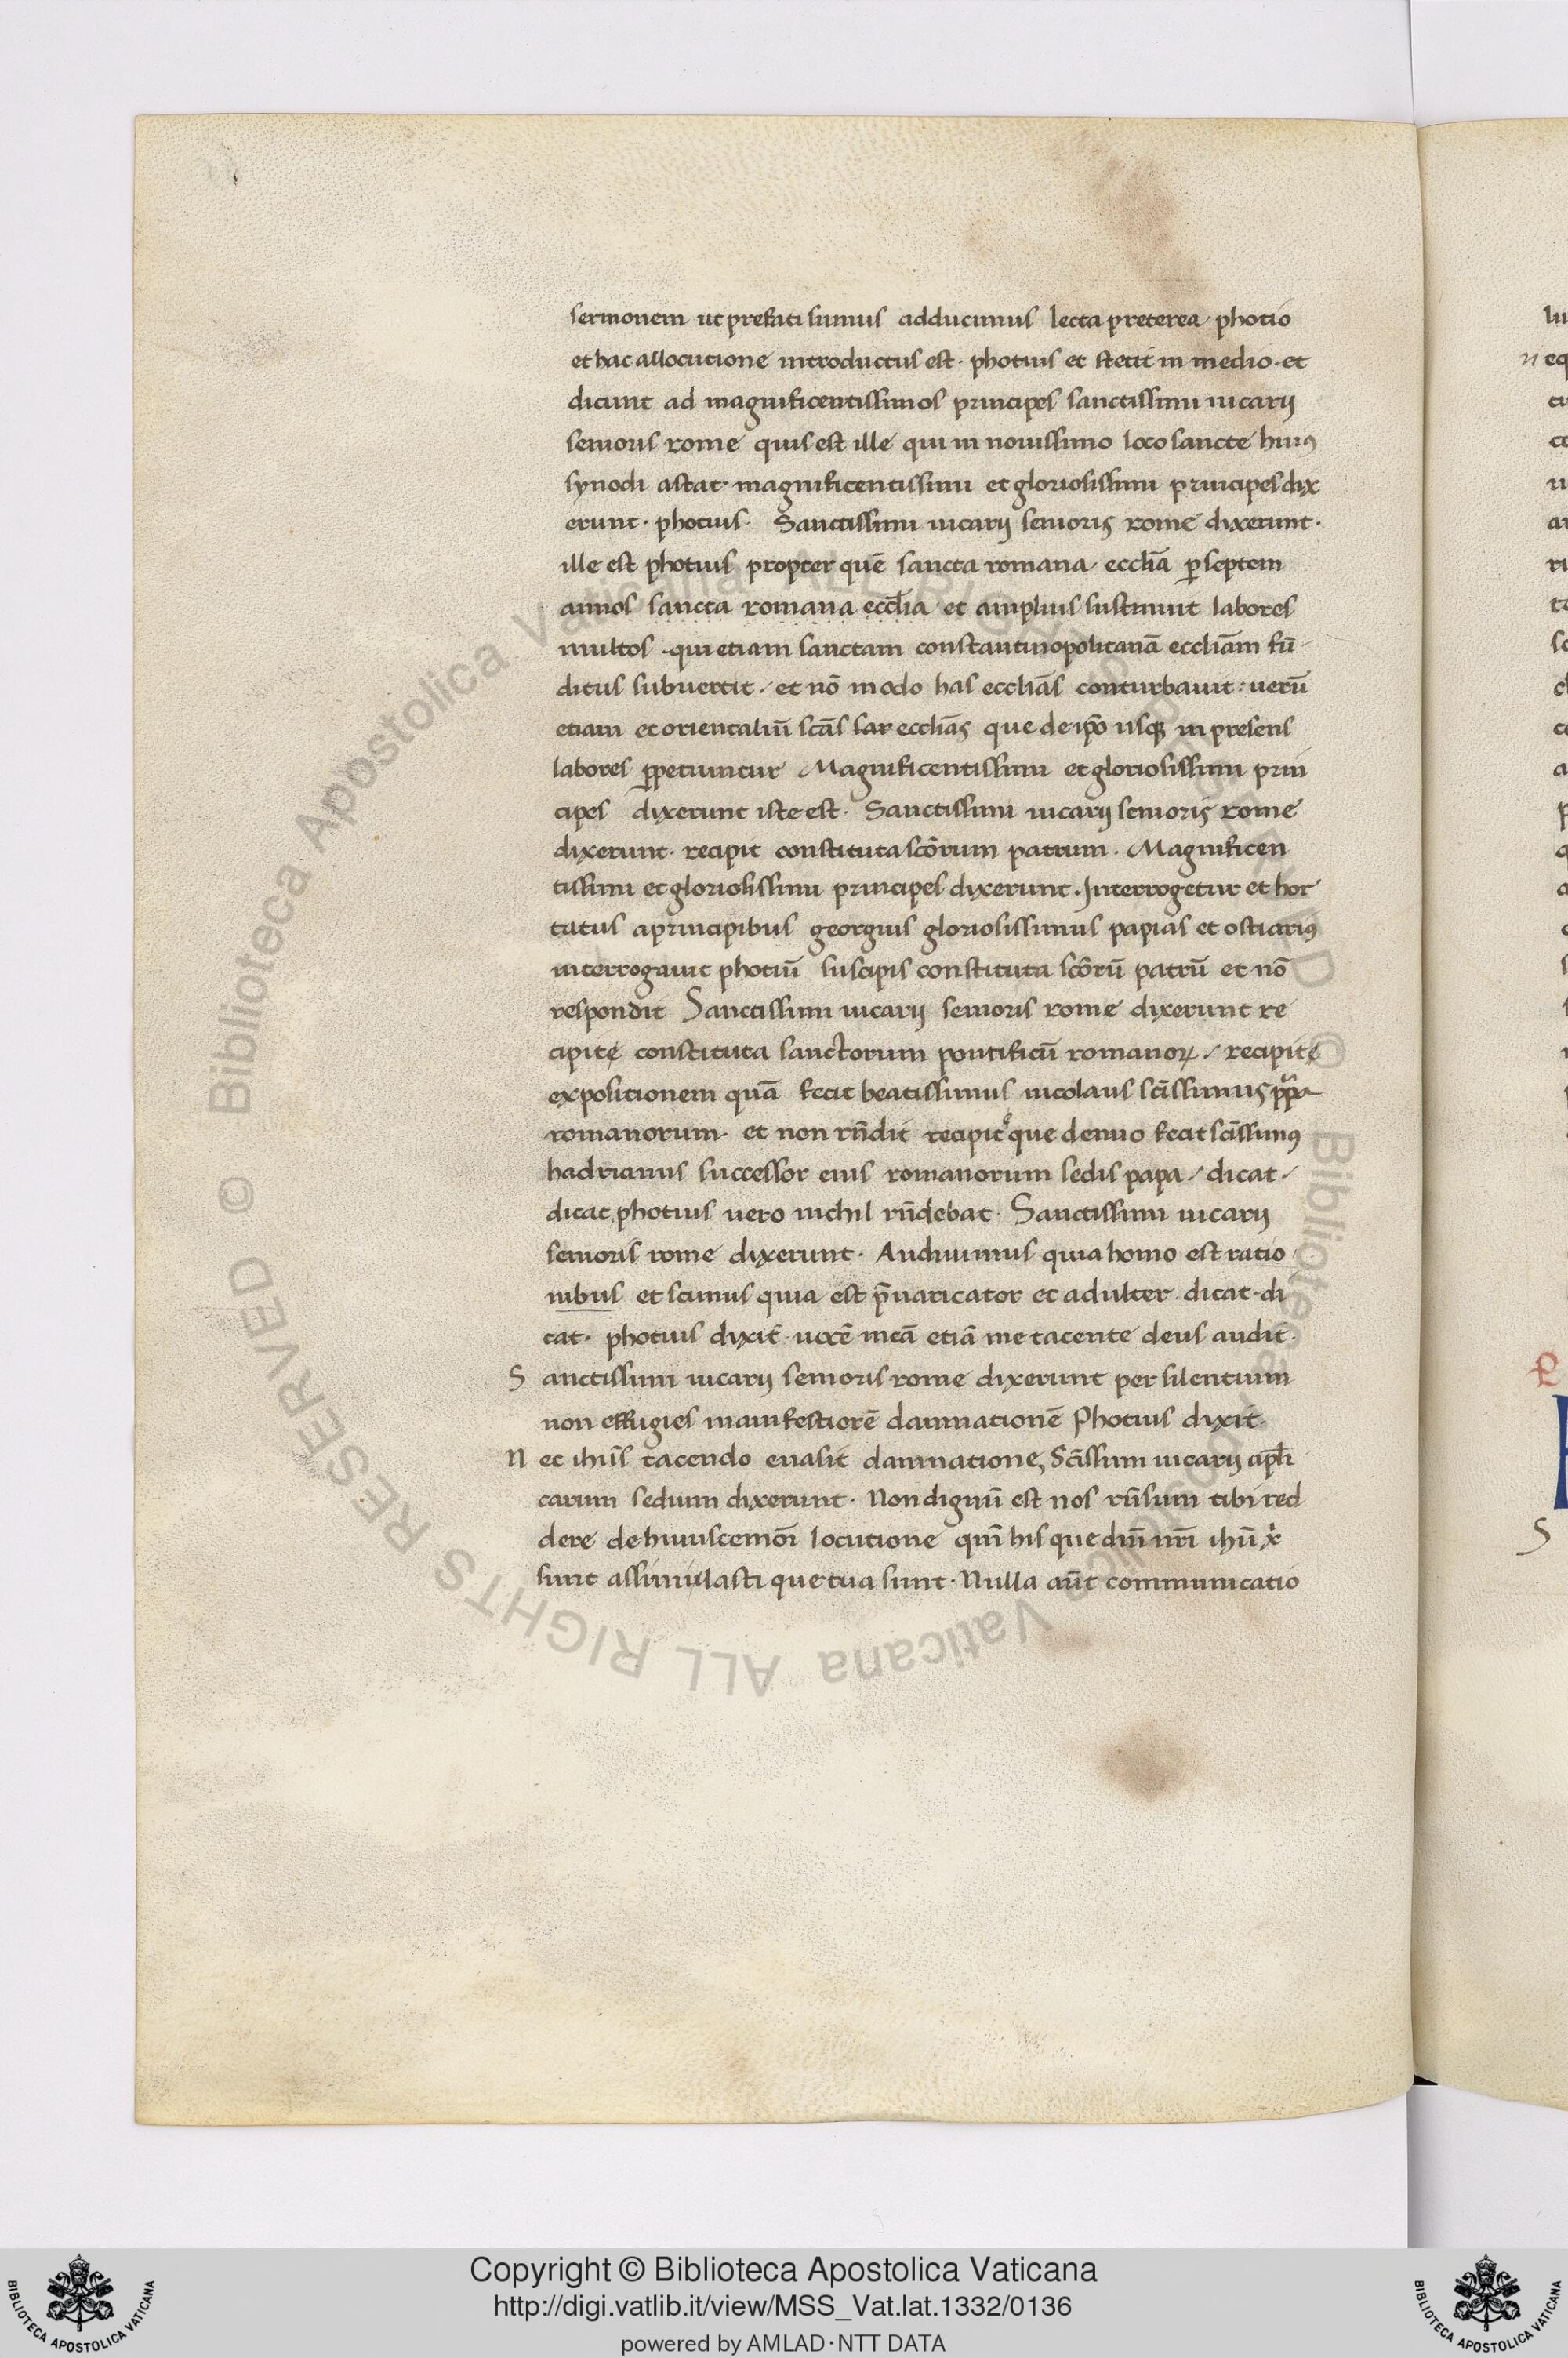 sermonem ut prefati sumus adducimus lecta preterea photio
et hac allocutione introductus est· photius et stetit in medio· et
dicunt ad magnificentissimos principes sanctissimi uicarij
senioris rome quis est ille qui in nouissimo loco sancte huiꝰ
synodi astat· magnificentissimi et gloriosissimi principes dix
erunt· photius· Sanctissimi uicarij senioris rome dixerunt·
ille est photius propter quē sancta romana ecclīa ꝑ septem
annos sancta romana eccl̄ia et amplius sustinuit labores
multos qui etiam sanctam constantinopolitanā eccliām fū
ditus subuertit / et nō modo has eccliās conturbauit: uerū
etiam et orientaliū scās sar eccliās que de ip̄o usqꝫ in presens
labores ꝑpetiuntur Magnificentissimi et gloriosissimi prin
cipes dixerunt iste est· Sanctissimi uicarij senioris rome
dixerunt· recipit constituta scōrum patrum· Magnificen
tissimi et gloriosissimi principes dixerunt· Interrogetur et hor
tatus a principibus georgius gloriosissimus papias et ostiariꝰ
interrogauit photiū suscipis constituta scōrū patrū et nō
respondit Sanctissimi uicarij senioris rome dixerunt re
cipite constituta sanctorum pontificū romanoꝝ / recipite
expositionem quā fecit beatissimus nicolaus scīssimus ppa
romanorum· et non rn̄dit recipite que denuo fecit scīssimꝰ
hadrianus successor eius romanorum sedis papa / dicat /
dicat, photius uero nichil rn̄debat· Sanctissimi uicarij
senioris rome dixerunt· Audiuimus quia homo est ratio
nibus et scimus quia est p̄uaricator et adulter· dicat· di
cat· photius dixit· uocē meā etiā me tacente deus audit·
S anctissimi uicarij senioris rome dixerunt per silentium
non effugies manifestiorē damnationē Photius dixit·
N ec ihūs tacendo euasit damnatione, Scīssimi uicarij apl̄i
carum sedium dixerunt· Non dignū est nos rn̄sum tibi red
dere de huiuscemōi locutione qm̄ his que dn̄i nr̄i ihū x̄
sunt assimilasti que tua sunt· Nulla aūt communicatio
Copyright © Biblioteca Apostolica Vaticana
http://digi.vatlib.it/view/MSS_Vat.lat.1332/0136
powered by AMLAD·NTT DATA